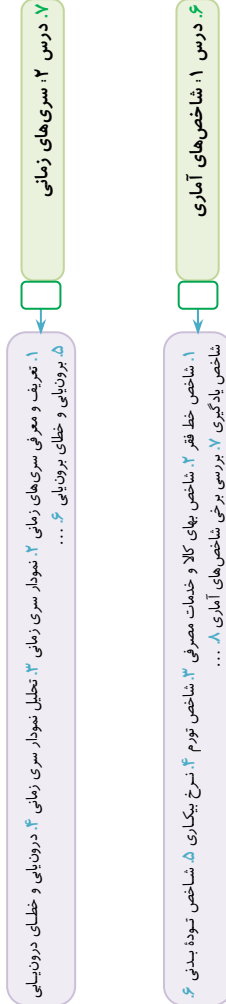 ۶. درس ۱: شاخص‌های آماری
۱. شاخص خط فقر ۲. شاخص بهای کالا و خدمات مصرفی ۳. شاخص تورم ۴. نرخ بیکاری ۵. شاخص تودهٔ بدنی ۶.
شاخص یادگیری ۷. بررسی برخی شاخص‌های آماری ۸. ...
۷. درس ۲: سری‌های زمانی
۱. تعریف و معرفی سری‌های زمانی ۲. نمودار سری زمانی ۳. تحلیل نمودار سری زمانی ۴. درون‌یابی و خطای درون‌یابی
۵. برون‌یابی و خطای برون‌یابی ۶. ...